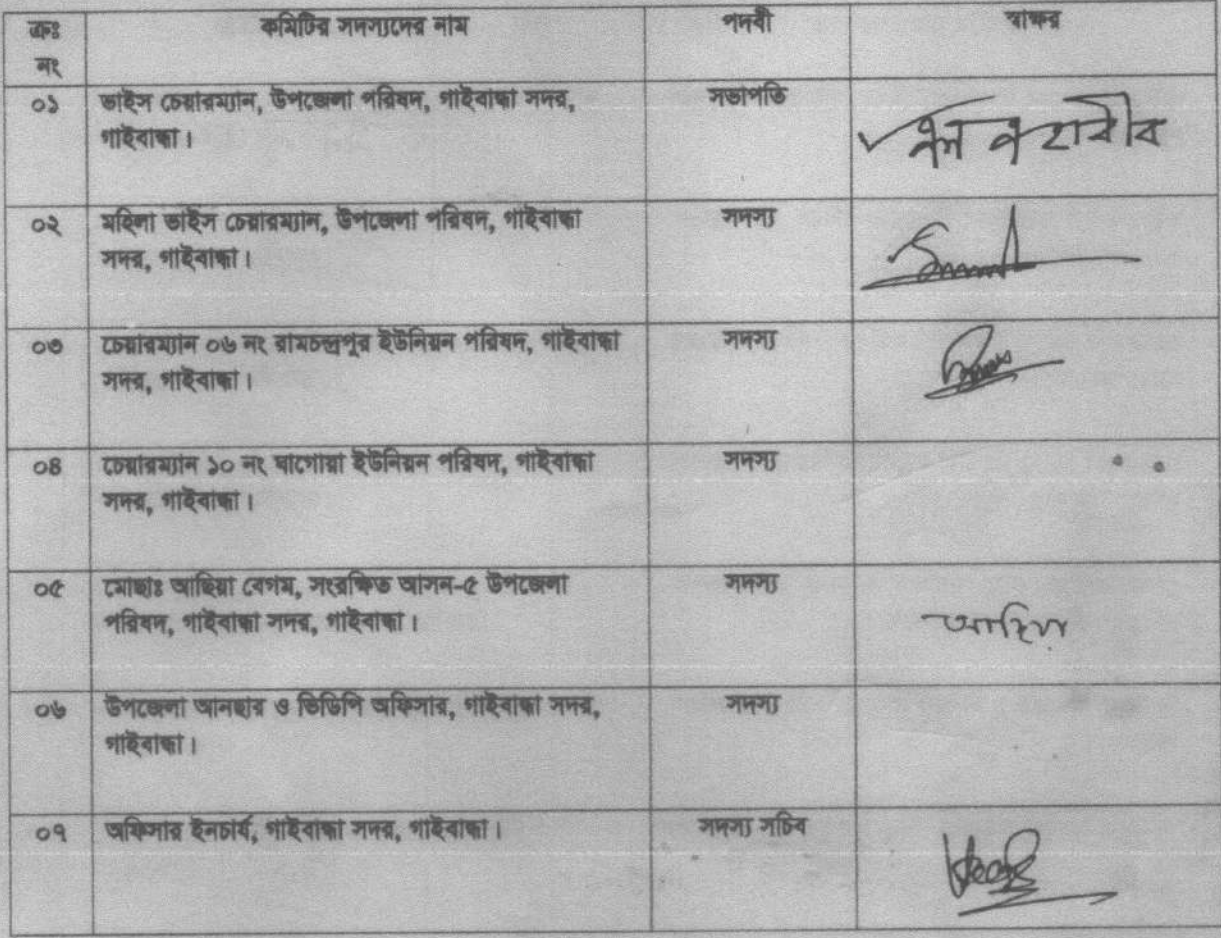 ক্রঃ নং কমিটির সদস্যদের নাম পদবী স্বাক্ষর
০১ ভাইস চেয়ারম্যান, উপজেলা পরিষদ, গাইবান্ধা সদর, সভাপতি
গাইবান্ধা।
০২ মহিলা ভাইস চেয়ারম্যান, উপজেলা পরিষদ, গাইবান্ধা সদস্য
সদর, গাইবান্ধা।
০৩ চেয়ারম্যান ০৬ নং রামচন্দ্রপুর ইউনিয়ন পরিষদ, গাইবান্ধা সদস্য
সদর, গাইবান্ধা।
০৪ চেয়ারম্যান ১০ নং ঘাগোয়া ইউনিয়ন পরিষদ, গাইবান্ধা সদস্য
সদর, গাইবান্ধা।
০৫ মোছাঃ আছিয়া বেগম, সংরক্ষিত আসন-৫ উপজেলা সদস্য
পরিষদ, গাইবান্ধা সদর, গাইবান্ধা।
০৬ উপজেলা আনছার ও ভিডিপি অফিসার, গাইবান্ধা সদর, সদস্য
গাইবান্ধা।
০৭ অফিসার ইনচার্য, গাইবান্ধা সদর, গাইবান্ধা। সদস্য সচিব